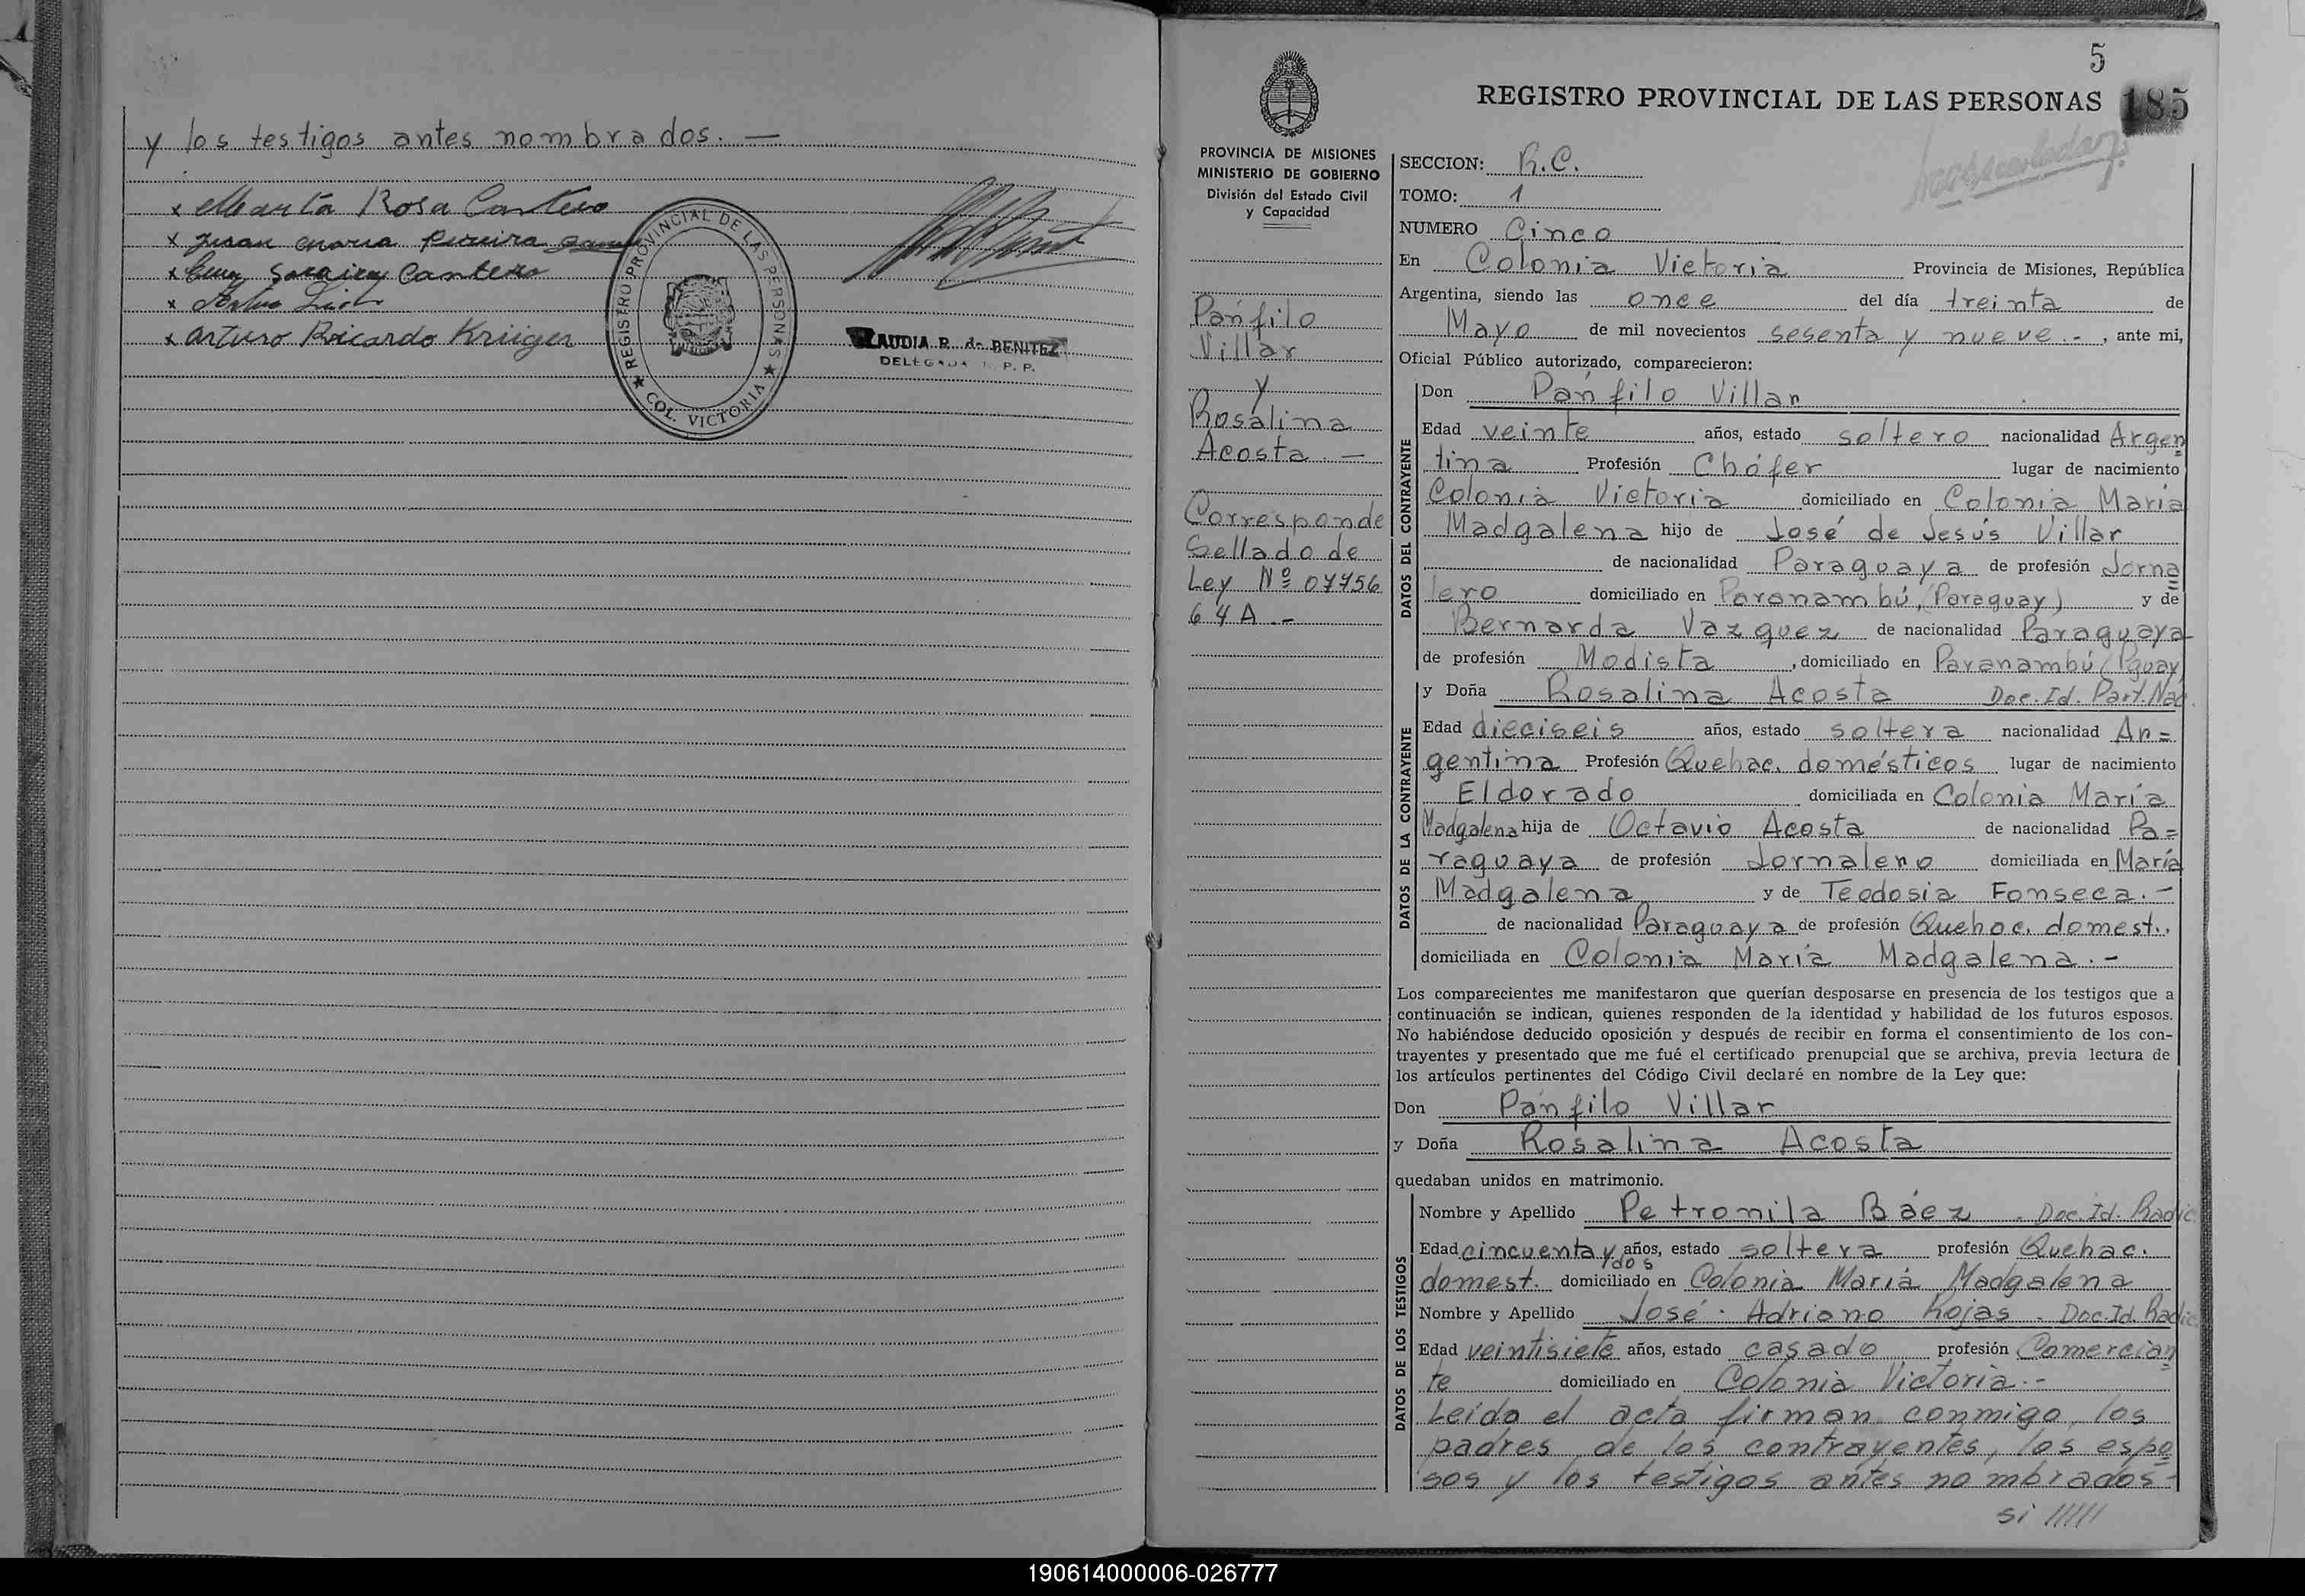 y los testigos antes nombrados. —
x Marta Rosa Cantero
x Juan Maria Pereira
x Cantero
x
x Arturo Ricardo Krüger
REGISTRO PROVINCIAL DE LAS PERSONAS
COL. VICTORIA
CLAUDIA R. de BENITEZ
DELEGADA R. P. P.
5
REGISTRO PROVINCIAL DE LAS PERSONAS 185
PROVINCIA DE MISIONES
MINISTERIO DE GOBIERNO
División del Estado Civil
y Capacidad
Pánfilo
Villar
y
Rosalina
Acosta. —
Corresponde
Sellado de
Ley Nº 07756
64A.-
SECCION: R.C.
TOMO: 1
NUMERO Cinco
En Colonia Victoria Provincia de Misiones, República
Argentina, siendo las once del día treinta de
Mayo de mil novecientos sesenta y nueve.-, ante mi,
Oficial Público autorizado, comparecieron:
DATOS DEL CONTRAYENTE
Don Pánfilo Villar
Edad veinte años, estado soltero nacionalidad Argen=
tina Profesión Chófer lugar de nacimiento
Colonia Victoria domiciliado en Colonia María
Madgalena hijo de José de Jesús Villar
de nacionalidad Paraguaya de profesión Jorna=
lero domiciliado en Paranambú, (Paraguay) y de
Bernarda Vazquez de nacionalidad Paraguaya
de profesión Modista, domiciliado en Paranambú (Pguay)
DATOS DE LA CONTRAYENTE
y Doña Rosalina Acosta Doc. Id. Part. Nac.
Edad dieciseis años, estado soltera nacionalidad Ar=
gentina Profesión Quehac. domésticos lugar de nacimiento
Eldorado domiciliada en Colonia María
Madgalena hija de Octavio Acosta de nacionalidad Pa=
raguaya de profesión Jornalero domiciliada en María
Madgalena y de Teodosia Fonseca.-
de nacionalidad Paraguaya de profesión Quehac. domest.
domiciliada en Colonia María Madgalena.-
Los comparecientes me manifestaron que querían desposarse en presencia de los testigos que a
continuación se indican, quienes responden de la identidad y habilidad de los futuros esposos.
No habiéndose deducido oposición y después de recibir en forma el consentimiento de los con-
trayentes y presentado que me fué el certificado prenupcial que se archiva, previa lectura de
los artículos pertinentes del Código Civil declaré en nombre de la Ley que:
Don Pánfilo Villar
y Doña Rosalina Acosta
quedaban unidos en matrimonio.
DATOS DE LOS TESTIGOS
Nombre y Apellido Petromila Báez . Doc. Id. Radic
Edad cincuenta y dos años, estado soltera profesión Quehac.
domest. domiciliado en Colonia María Madgalena
Nombre y Apellido José Adriano Rojas . Doc. Id. Radic
Edad veintisiete años, estado casado profesión Comercian=
te domiciliado en Colonia Victoria.-
Leída el acta firman conmigo, los
padres de los contrayentes, los espo=
sos y los testigos antes nombrados-
si //////
190614000006-026777